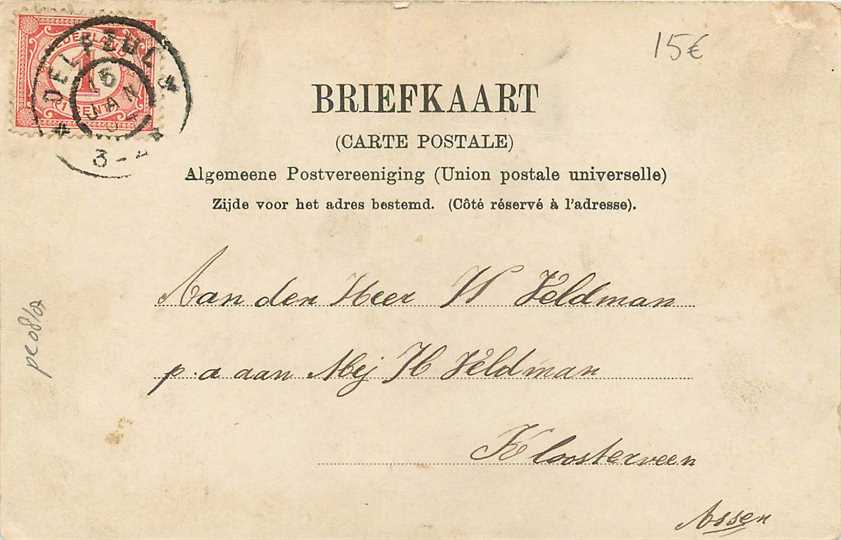 15€
NEDERLAND
1
1 CENT
DELFZIJL
5
JAN
3-4
BRIEFKAART
(CARTE POSTALE)
Algemeene Postvereeniging (Union postale universelle)
Zijde voor het adres bestemd. (Côté réservé à l'adresse).
Aan den Heer W Veldman
p. a aan Mej H Veldman
Kloosterveen
Assen